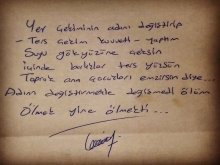 Yer çekiminin adını değiştirip
- Ters çekim kuvveti - yaptım
Suyu gökyüzüne çeksin
İçinde balıklar ters yüzsün
Toprak ana çocukları emzirsin diye...
Adını değiştirmekle değişmedi ölüm
Ölmek yine ölmekti...